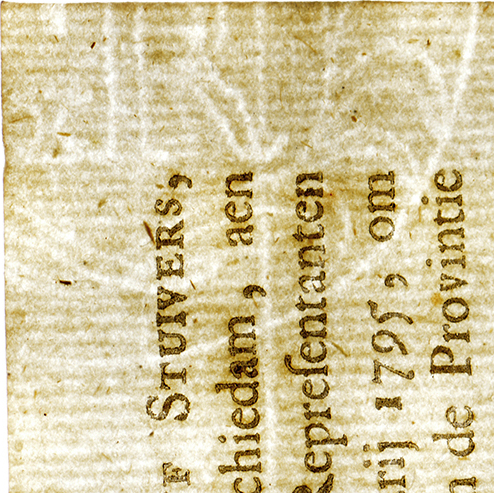 E STUIVERS,
chiedam, aen
Repreſentanten
rij 1795, om
n de Provintie